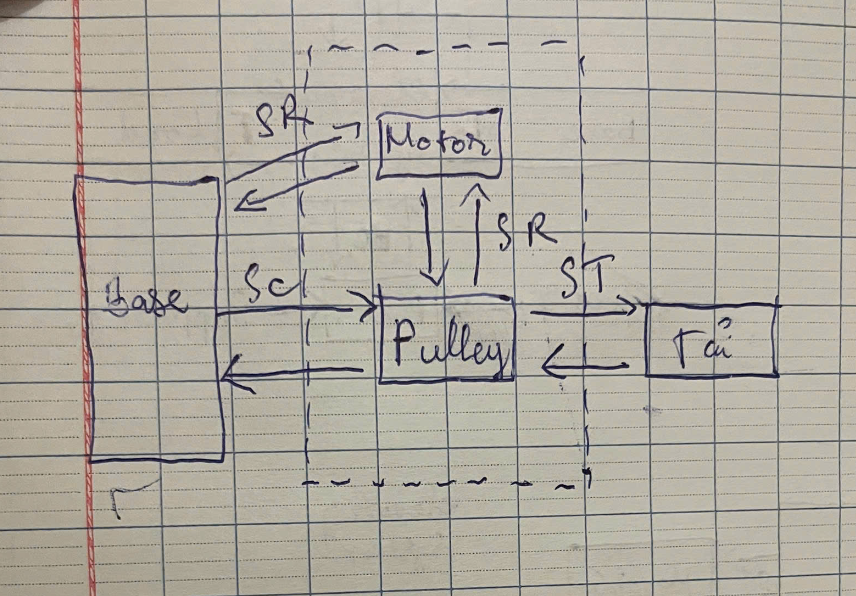 SR
Motor
SR
Base
SC
ST
Pulley
Tải